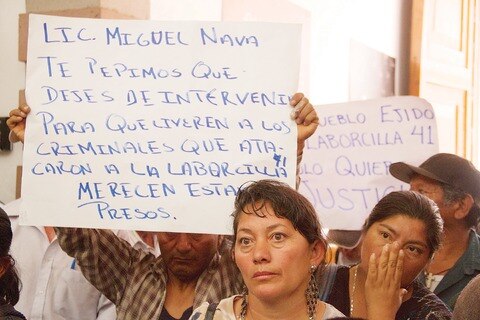 LIC. MIGUEL NAVA
TE PEPIMOS QUE
DEJES DE INTERVENI
PARA QUE LIVEREN A LOS
CRIMINALES QUE ATA
CARON A LA LABORCILLA 41
MERECEN ESTA
PRESOS.
PUEBLO EJIDO
LABORCILLA 41
LO QUIER
JUSTICI